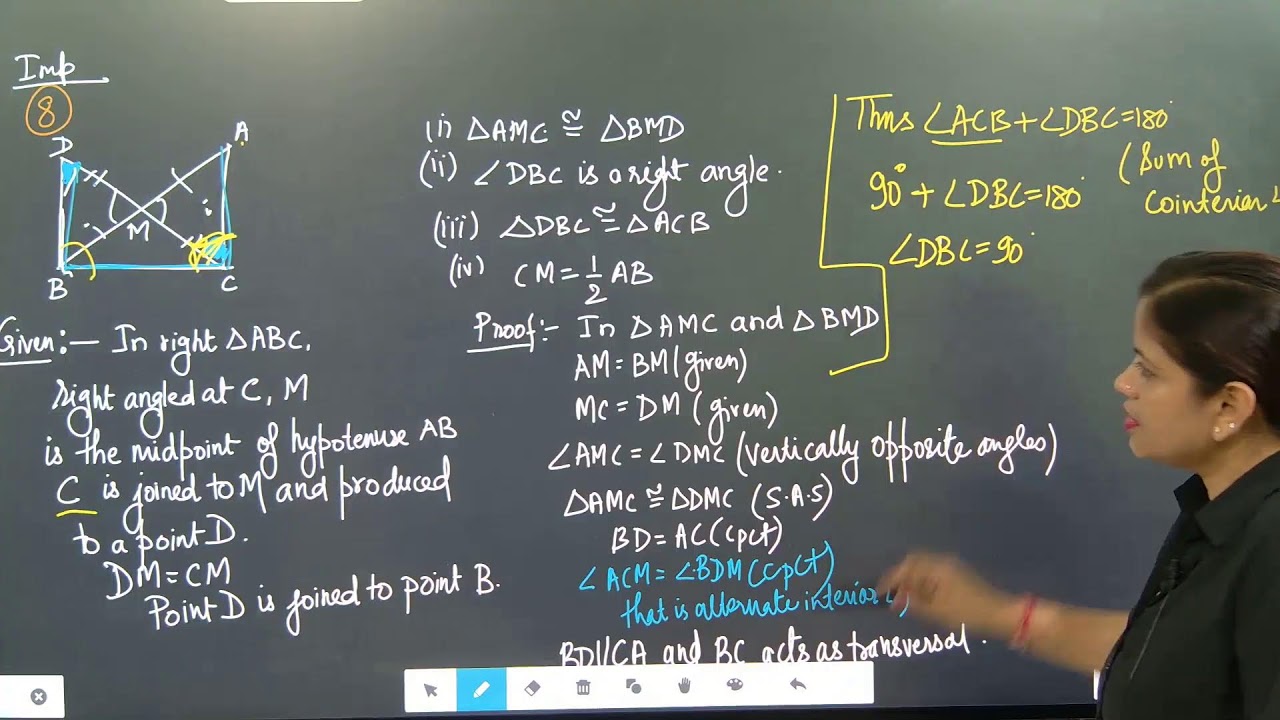 Imp
8
D
A
M
B
C
Given:- In right △ABC,
right angled at C, M
is the midpoint of hypotenuse AB
C is joined to M and produced
to a point D.
DM=CM
Point D is joined to point B.
(i) △AMC ≅ △BMD
(ii) ∠DBC is a right angle.
(iii) △DBC ≅ △ACB
(iv) CM = 1/2 AB
Proof:- In △AMC and △BMD
AM = BM (given)
MC = DM (given)
∠AMC = ∠DMC (vertically opposite angles)
△AMC ≅ △DMC (S.A.S)
BD = AC (cpct)
∠ACM = ∠BDM (cpct)
that is alternate interior
BD//CA and BC acts as transversal.
Thus ∠ACB + ∠DBC = 180°
(Sum of
cointerior ∠
90° + ∠DBC = 180°
∠DBC = 90°